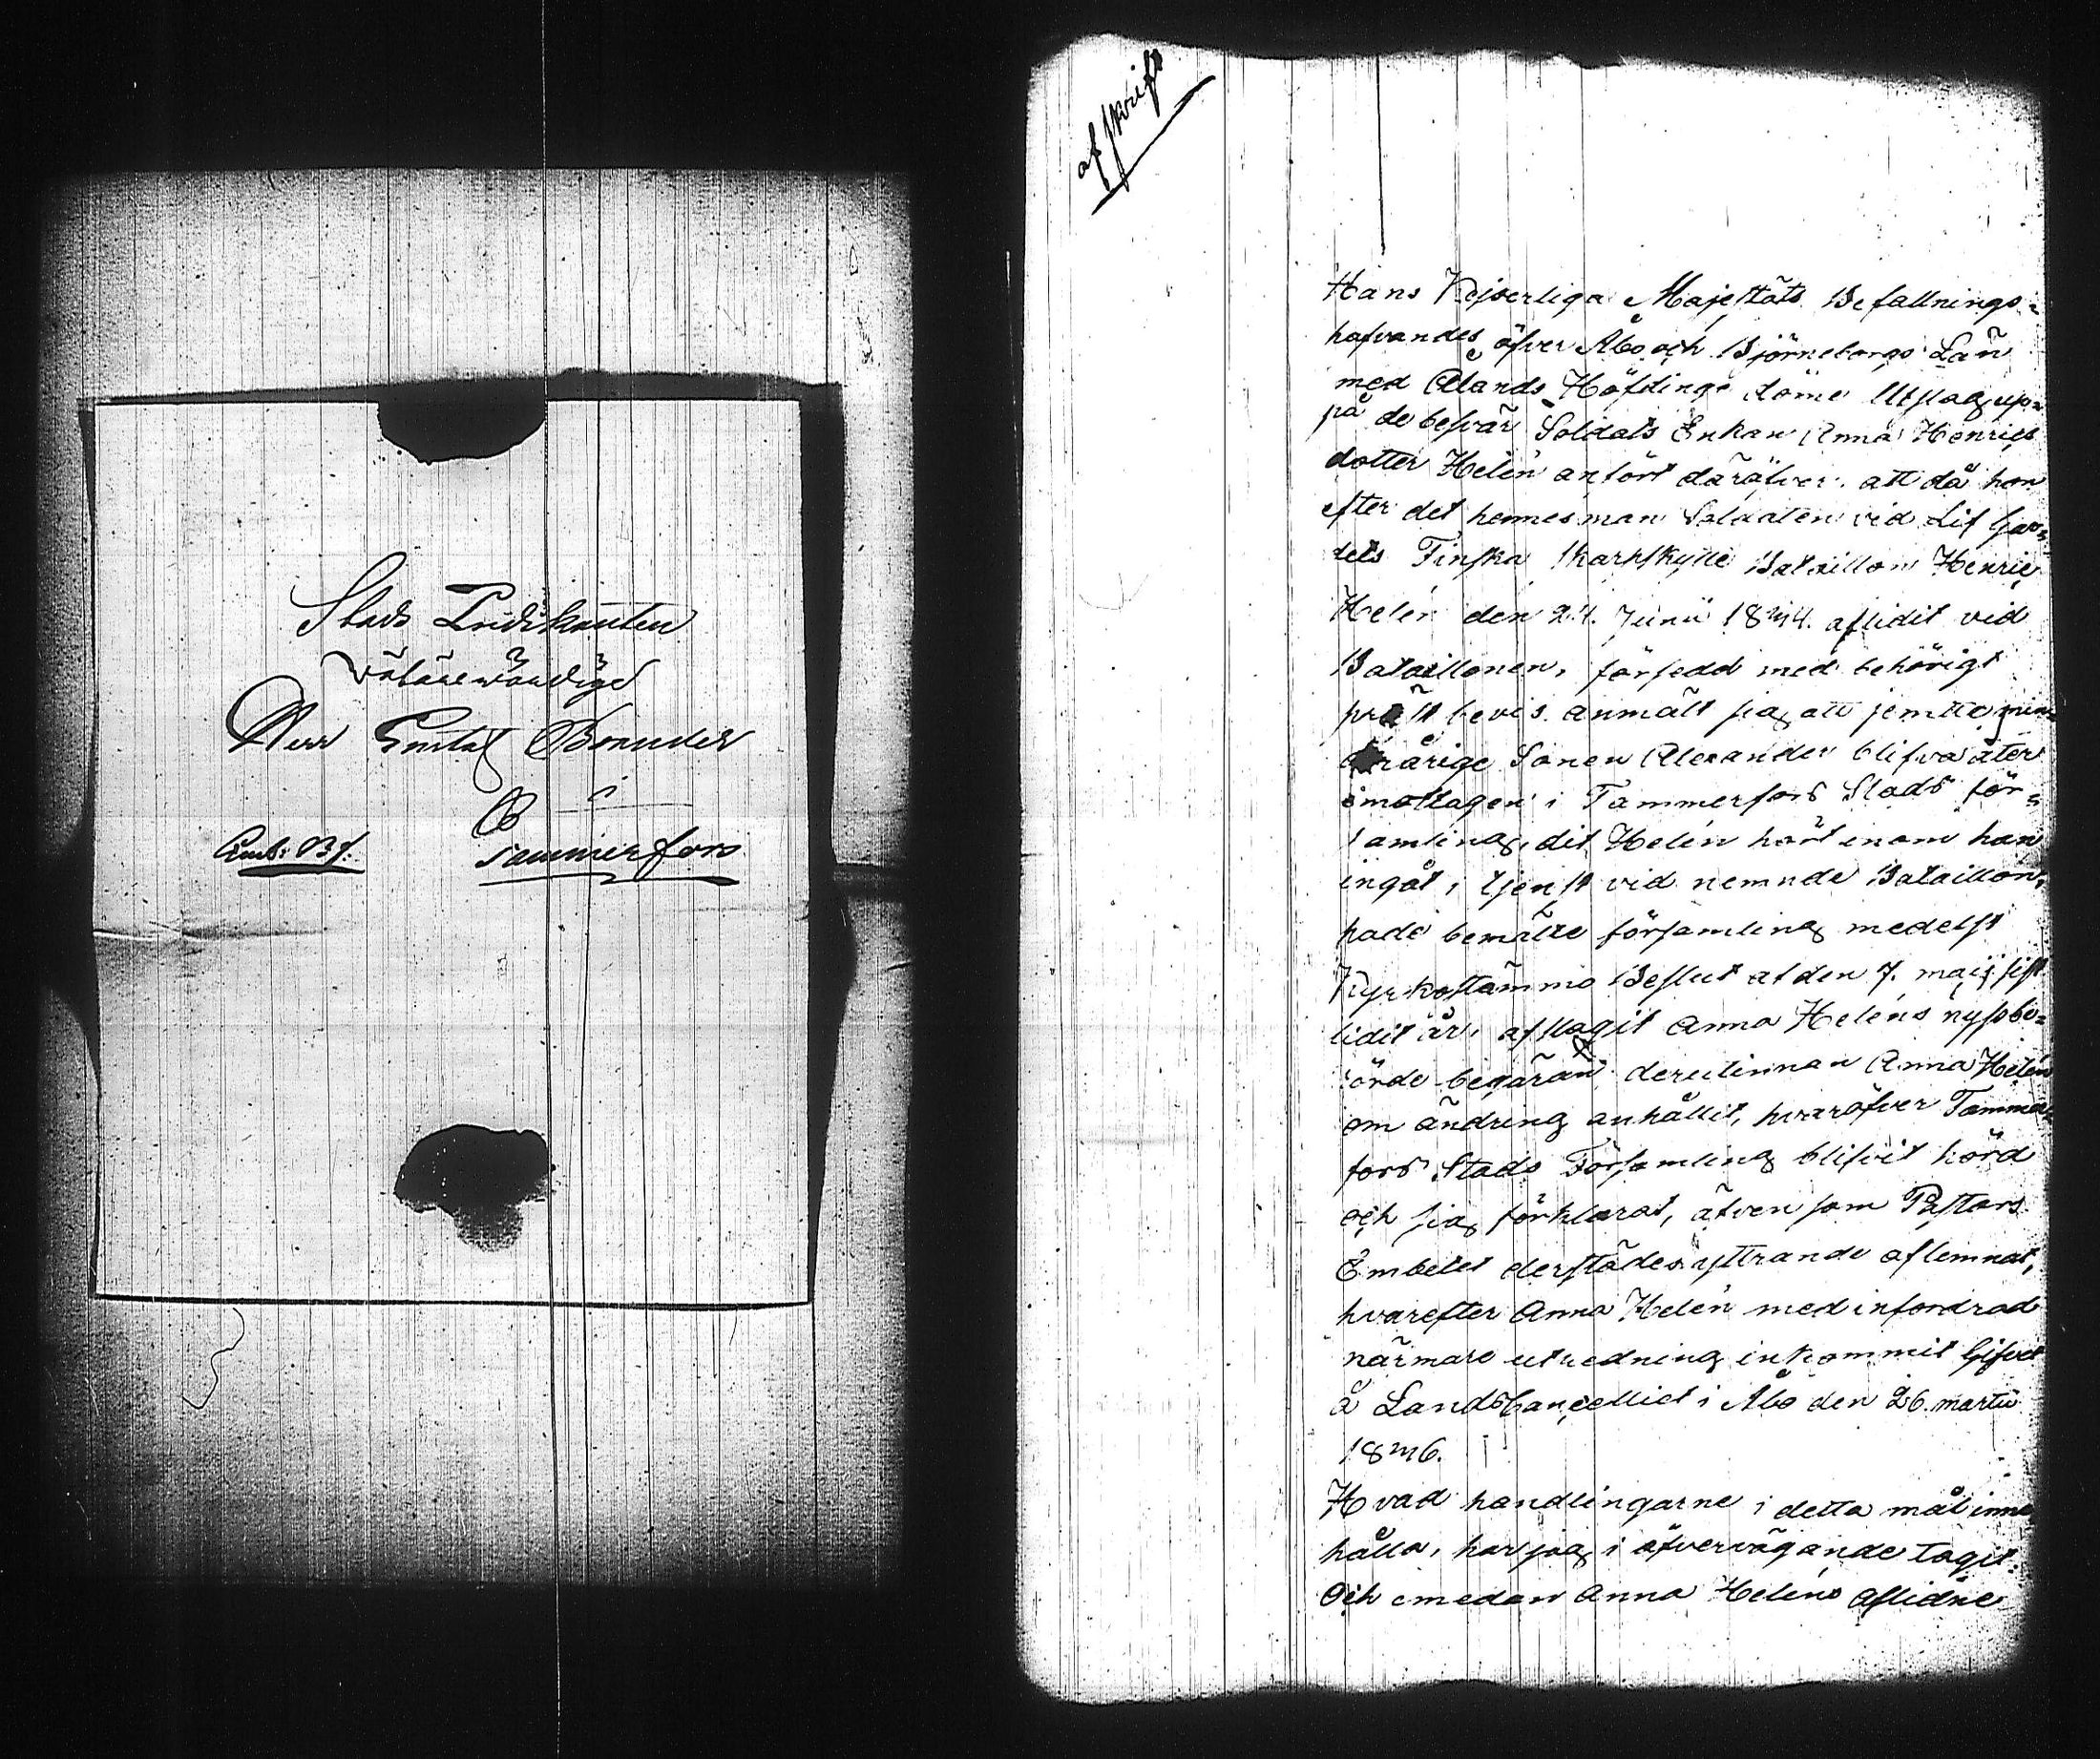 Stads Predikanten
vällärewördige
Herr Gustaf Bonuder
Tammerfors
Embs. Bf.
afskrift
Hans Kejserliga Majestäts Befallnings-
hafvandes öfver Åbo och Björneborgs Län
med Ålands Höfdinge döme Utslag up-
på de besvär Soldats Enkan Anna Henrics
dotter Helén anfört däröfver, att då hon
efter det hennes man Soldaten vid Lif Gar-
dets Finska Skarpskytte Bataillon Henric
Helén den 24. Junii 1844. aflidit vid
Bataillonen, försedd med behörigt
prest bevis. anmält sig att jemte min-
deråriga Sonen Alexander blifva åter
emottagen i Tammerfors Stads för-
samling, dit Helén hört innan han
ingåt i tjenst vid nemnde Bataillon,
hade bemälte församling medelst
Kyrkostämmo Beslut af den 7. maij sist
lidit år, afslagit Anna Heléns nyssbe-
rörde begäran, derutinnan Anna Helén
om ändring anhållit, hvaröfver Tammer-
fors Stads Församling blifvit hörd
och sig förklarat, äfven som Pastors
Embetet derstädes yttrande aflemnat,
hvarefter Anna Helén med infordrad
närmare utredning inkommit Gifvet
å Landscancelliet i Åbo den 26. martii
1846.
Hvad handlingarne i detta mål inne
hålla, har jag i öfvervägande tagit.
Och emedan Anna Heléns aflidne